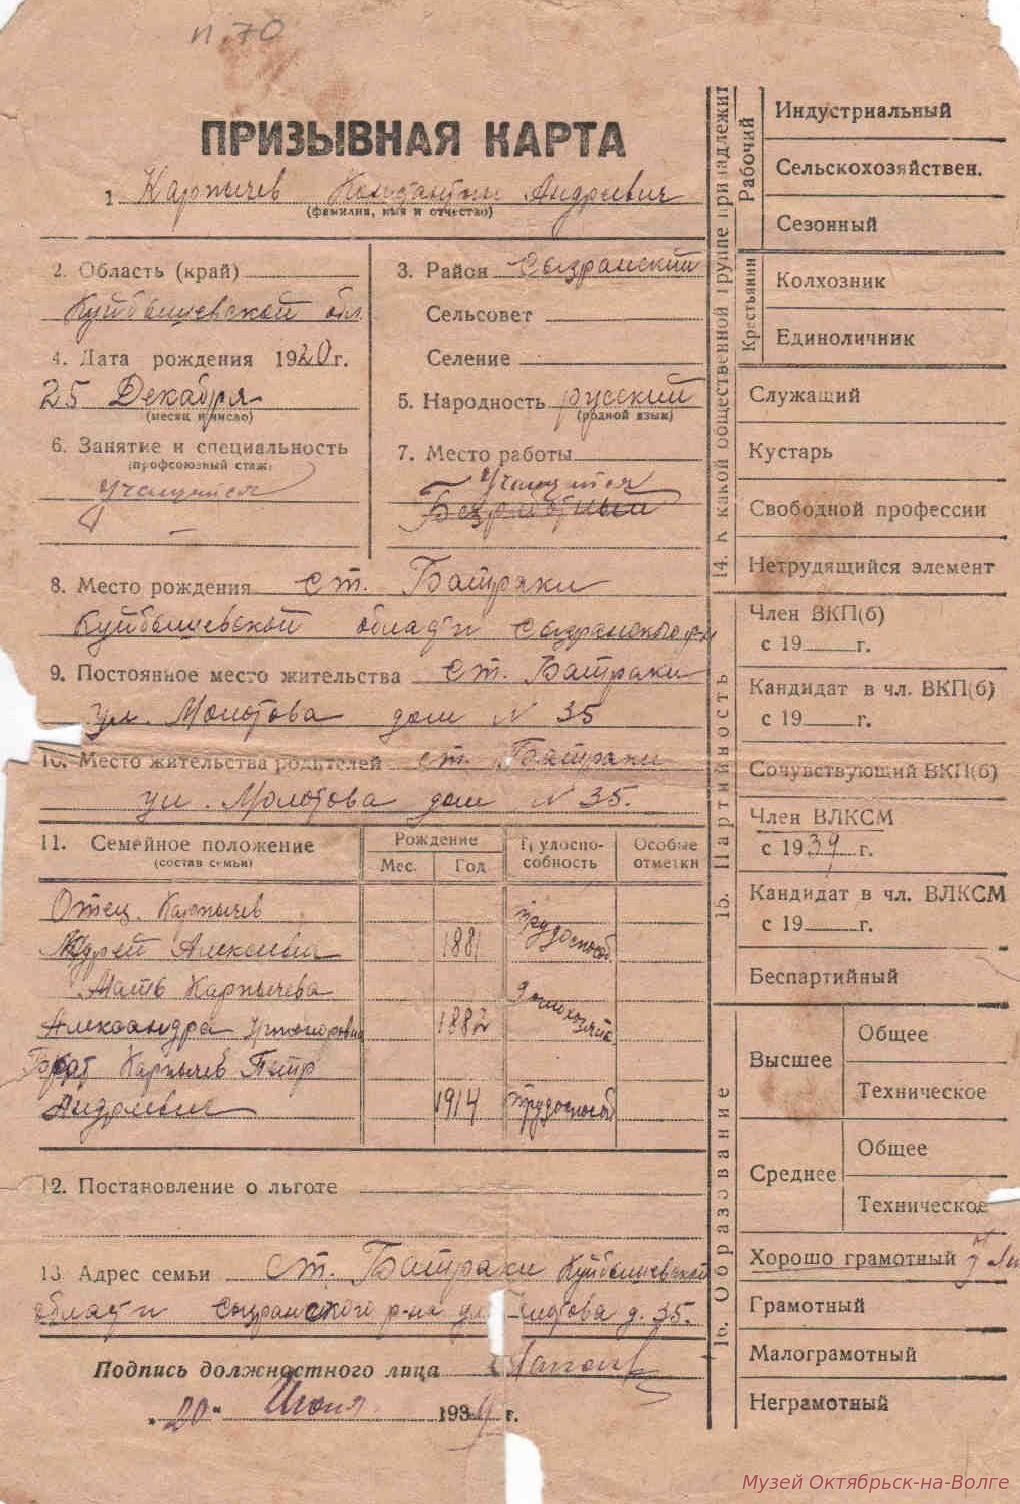 п. 70
ПРИЗЫВНАЯ КАРТА
1 Карпычев Константин Андреевич
(фамилия, имя и отчество)
2. Область (край)
Куйбышевской обл
3. Район Сызранский
Сельсовет
Селение
4. Дата рождения 1920 г.
25 Декабря
(месяц и число)
5. Народность русский
(родной язык)
6. Занятие и специальность
(профсоюзный стаж)
Учащийся
7. Место работы
Учащийся
Безработный
8. Место рождения ст. Батраки
Куйбышевской области Сызранского р-н
9. Постоянное место жительства ст. Батраки
ул. Молотова дом № 35
10. Место жительства родителей ст. Батраки
ул. Молотова дом № 35.
11. Семейное положение
(состав семьи)
Рождение
Мес. Год
Трудоспо-
собность
Особые
отметки
Отец Карпычев
Андрей Алексеевич 1881 трудоспособ
Мать Карпычева
Александра 1882 Домохозяйк
Брат Карпычев Петр
Андреевич 1914 трудоспособ
12. Постановление о льготе
13 Адрес семьи ст. Батраки Куйбышевской
области Сызранского р-на ул. Молотова д. 35.
Подпись должностного лица
"20" Июня 1939 г.
14. К какой общественной группе принадлежит
Рабочий
Индустриальный
Сельскохозяйствен.
Сезонный
Крестьянин
Колхозник
Единоличник
Служащий
Кустарь
Свободной профессии
Нетрудящийся элемент
15. Партийность
Член ВКП(б)
с 19 г.
Кандидат в чл. ВКП(б)
с 19 г.
Сочувствующий ВКП(б)
Член ВЛКСМ
с 1939 г.
Кандидат в чл. ВЛКСМ
с 19 г.
Беспартийный
16. Образование
Высшее
Общее
Техническое
Среднее
Общее
Техническое
Хорошо грамотный
Грамотный
Малограмотный
Неграмотный
Музей Октябрьск-на-Волге